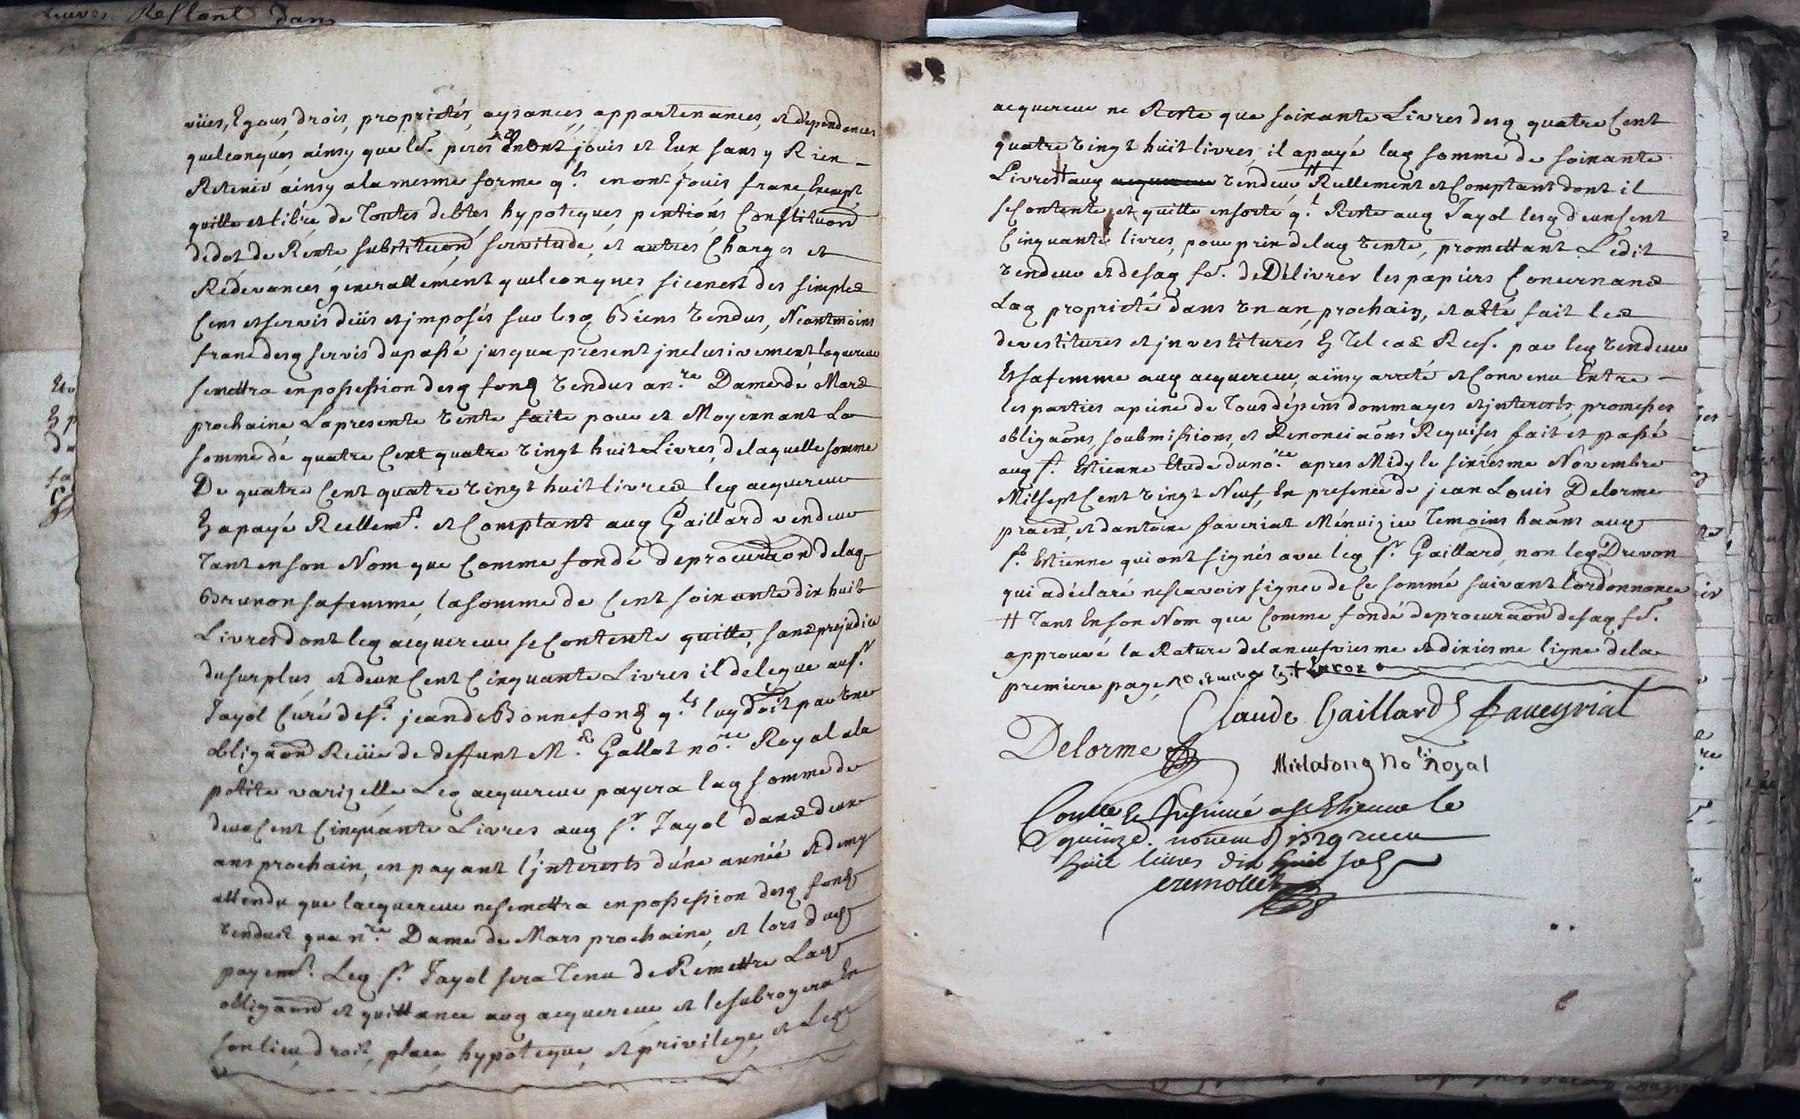 Restent dans
viües, Egous, drois, proprietés, aysances, appartenances, et dépendences
quelconques ainsy que les. peres en ont jouis et Eux sans y Rien
Retenir ainsy a la mesme forme q.ls en ont jouis franc, Exempt
quitte et libre de toutes debtes hypoteques pentions Constituaon
didot de Rente substituaon, servitude, et autres Charges et
Redevances generallement quelconques si ce nest des simples
Cens et servis deüs et jmposés sur lesq Biens vendus, Neantmoins
franc desq servis du passé jusqua present jnclusivement laquereur
se mettra en possession desq fonds vendus a n.re Dame de Mars
prochaine La presente vente faite pour et Moyennant La
somme de quatre Cent quatre vingt huit Livres, de laquelle somme
De quatre Cent quatre vingt huit livres leq acquereur
a payé Reellem.t et Comptant auq Gaillard vendeur
tant en son Nom que Comme fondé de procuraon de laq
Brunon sa femme, la somme de Cent soixante dix huit
Livres dont leq acquereur se Contente quitte, sans prejudice
du surplus, et deux Cent Cinquante Livres il delegue au s.r
Jayol Curé de s.t jean de Bonnefonds q.ls luy doit par une
obligaon Reçüe de deffunt M.e Gallot no.re Royal a la
petite varizelle Leq acquereur payera laq somme de
deux Cent Cinquante Livres auq s.r Jayol dans deux
ans prochain, en payant l'jnterests d'une année et demy
attendu que lacquereur ne se mettra en possession desq fonds
vendus qua n.re Dame de Mars prochaine, et lors dud
payem.t Leq s.r Jayol sera tenu de Remettre Laq
obligaon et quittance auq acquereur et le subrogera En
son lieu, droit, place, hypoteque, et privilege, et Leq
acquereur ne Reste que soixante Livres desq quatre Cent
quatre vingt huit livres, il a payé laq somme de soixante
Livres auq acquereur vendeur # Reellement et Comptant dont il
se Contente et quitte en sorte q.l Reste auq Jayol lesq deux Cent
Cinquante livres, pour prix de laq vente, promettant Ledit
vendeur et de saq fe. de Délivrer les papiers Concernans
Laq proprieté dans un an, prochain, et a eté fait les
devestitures et jnvestitures En tel cas Req. par leq vendeur
Et sa femme auq acquereur, ainsy arreté et Convenu Entre
les parties a peine de tous dépens dommages et jnterests, promesses
obligaons, soubmissions, et Renonciaons Requises fait et passé
auq s.t Estienne Etude du no.re apres Midy le sixiesme Novembre
Mil sept Cent vingt Neuf, En presence de jean Louis Delorme
praen, et d'antoine faveriat Ménuizier temoins haans auq
s.t Estienne qui ont signés avec leq s.r Gaillard, non leq Drevon
qui a déclaré ne scavoir signer de Ce sommé suivant l'ordonnance
# tant En son Nom que Comme fondé de procuraon de saq fe.
approuvé la Rature de la neufviesme et dixiesme ligne de la
premiere page
Claude Gaillard faveyriat
Delorme
Mielatong No.re Royal
Conlle & Insinué a s.t Etienne le
quinze novemb. 1729 receu
huit livres dix huit sols